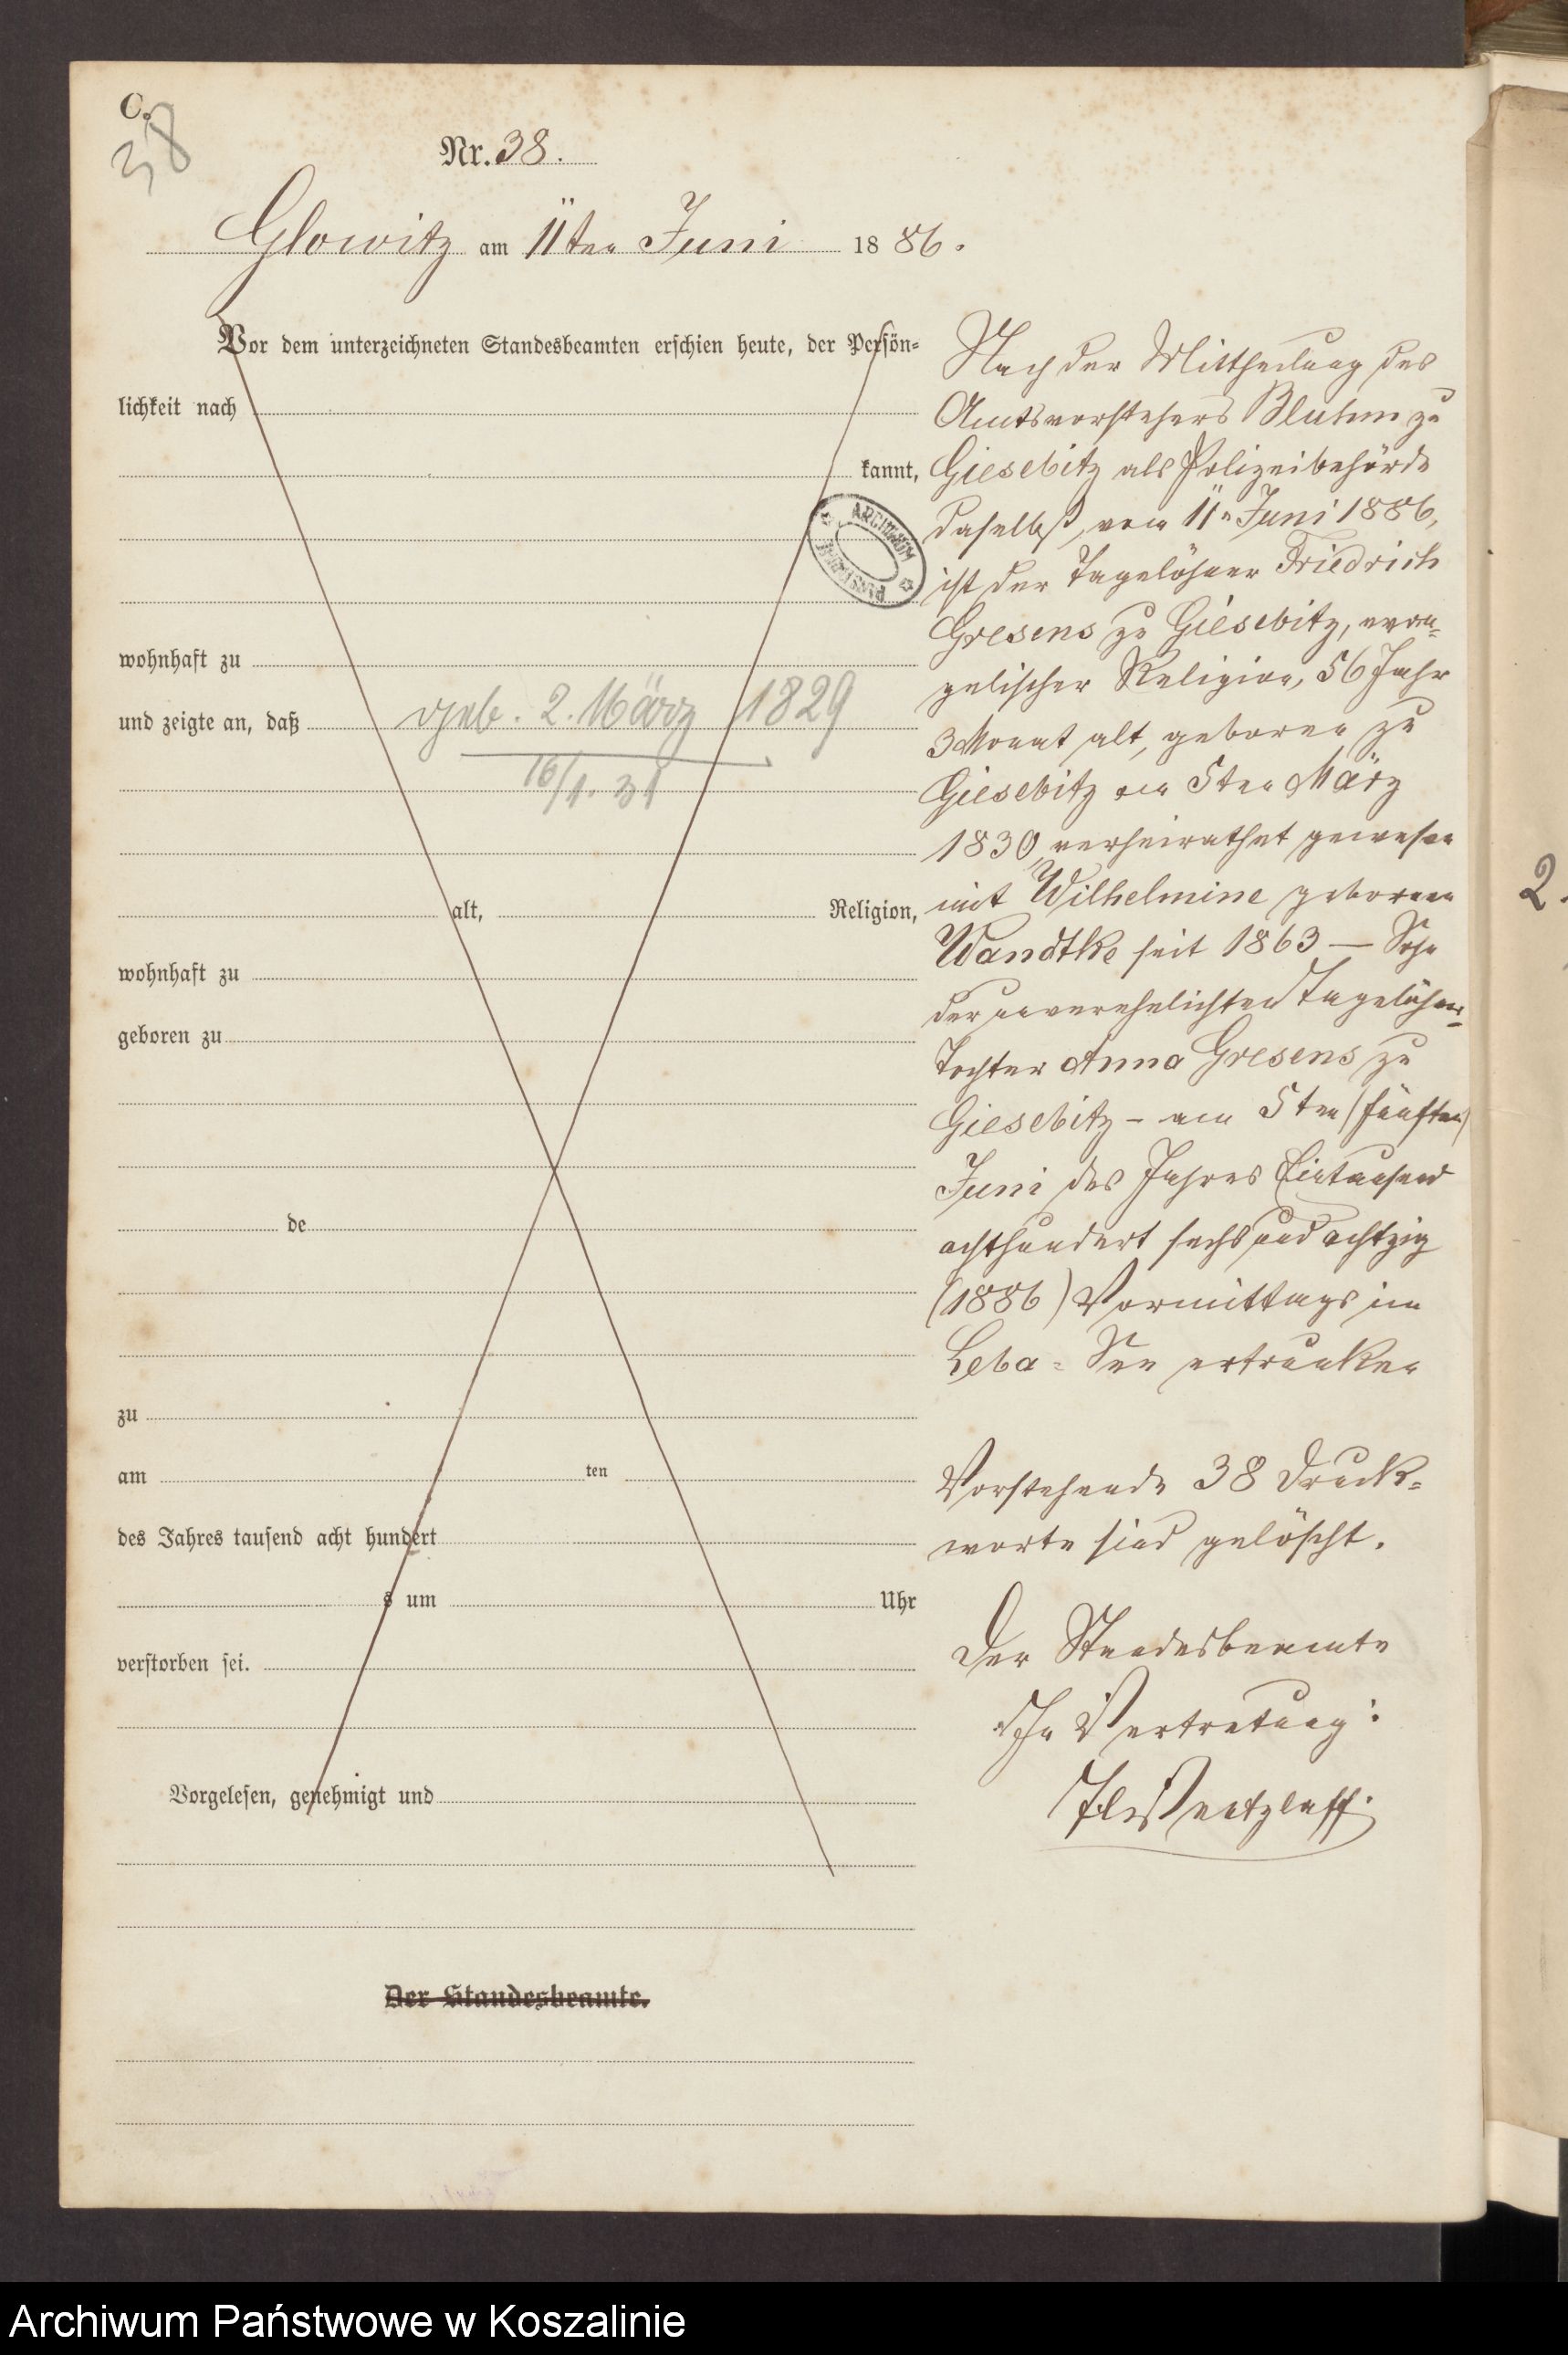 C.
38
Nr. 38.
Glowitz am 11ten Juni 1886.
Vor dem unterzeichneten Standesbeamten erschien heute, der Persön=
lichkeit nach
kannt,
wohnhaft zu
und zeigte an, daß
geb. 2. März 1829
16/1. 31
alt, Religion,
wohnhaft zu
geboren zu
de
zu
am ten
des Jahres tausend acht hundert
s um Uhr
verstorben sei.
Vorgelesen, genehmigt und
Der Standesbeamte.
Nach der Mittheilung des
Amtsvorstehers Bluhm zu
Giesebitz als Polizeibehörde
daselbst, vom 11n Juni 1886,
ist der Tagelöhner Friedrich
Gresens zu Giesebitz, evan=
gelischer Religion, 56 Jahr
3 Monat alt, geboren zu
Giesebitz am 5ten März
1830, verheirathet gewesen
mit Wilhelmine geborenen
Wandtke seit 1863 — Sohn
der unverehelichten Tagelöhner=
Tochter Anna Gresens zu
Giesebitz – am 5ten (fünften)
Juni des Jahres Eintausend
achthundert sechs und achtzig
(1886) Vormittags im
Leba=See ertrunken
Vorstehende 38 Druck=
worte sind gelöscht.
Der Standesbeamte
In Vertretung:
ARCHIWUM
2.
Archiwum Państwowe w Koszalinie